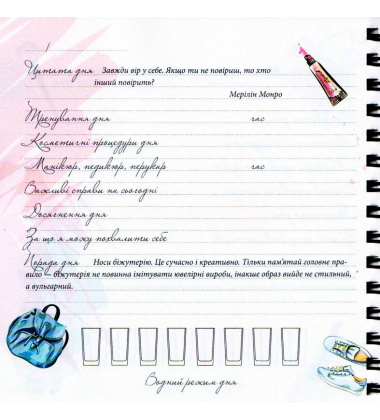 Цитата дня Завжди вір у себе. Якщо ти не повіриш, то хто
інший повірить?
Мерілін Монро
Тренування дня час
Косметичні процедури дня
Манікюр, педикюр, перукар час
Важливі справи на сьогодні
Досягнення дня
За що я можу похвалити себе
Порада дня Носи біжутерію. Це сучасно і креативно. Тільки пам'ятай головне пра-
вило — біжутерія не повинна імітувати ювелірні вироби, інакше образ вийде не стильний,
а вульгарний.
Водний режим дня